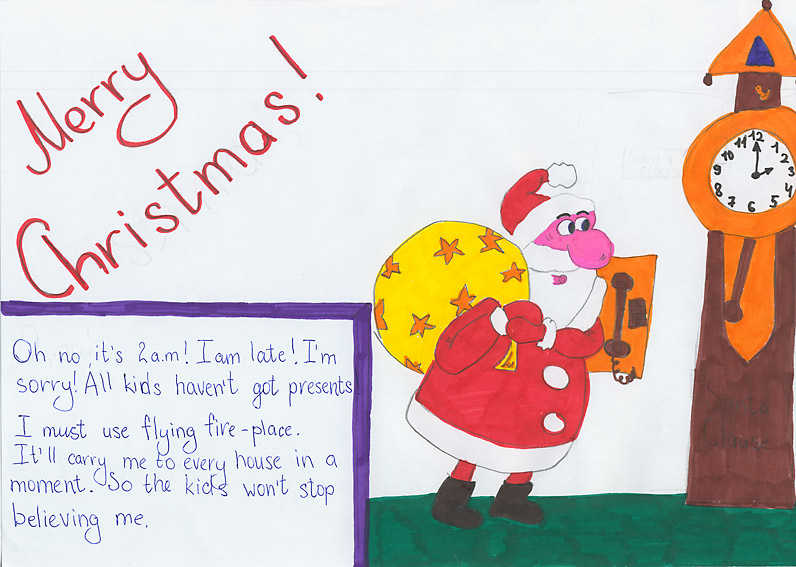 Merry
Christmas!
Oh no, it's 2a.m! I am late! I'm
sorry! All kids haven't got presents
I must use flying fire-place.
It'll carry me to every house in a
moment. So the kids won't stop
believing me.
11 12 1
10 2
9 3
8 4
7 6 5
Santa
Clause